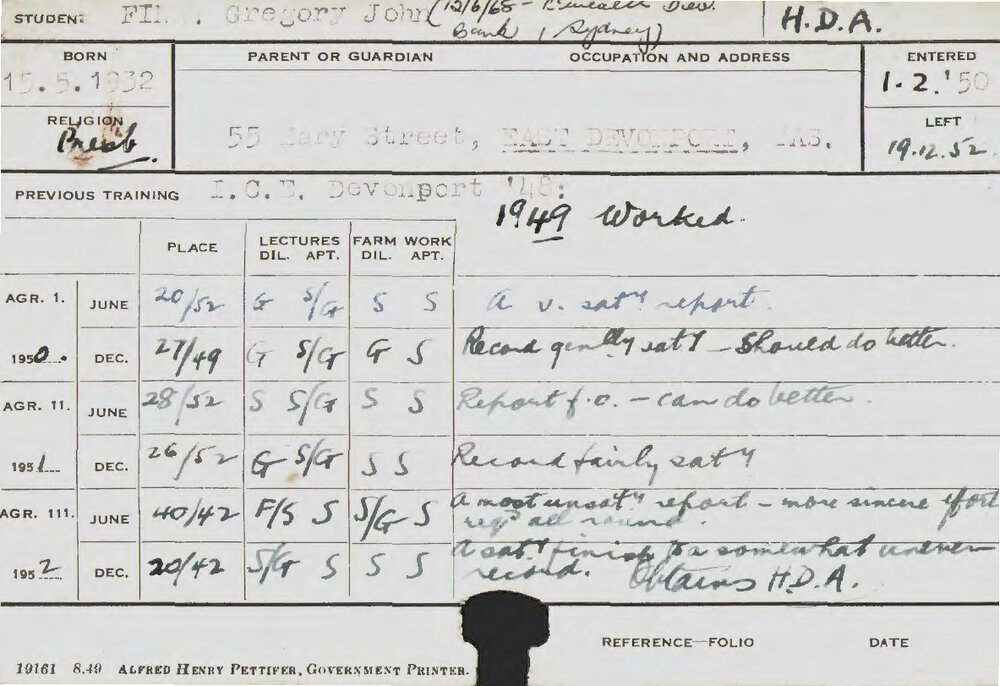 STUDENT Gregory John (12/6/68 - Dev.
Bank, Sydney)
H.D.A.
BORN PARENT OR GUARDIAN OCCUPATION AND ADDRESS ENTERED
15.5.1932 1.2.'50
RELIGION LEFT
Presb. 55 Mary Street, EAST DEVONPORT, TAS. 19.12.52
PREVIOUS TRAINING I.C.E. Devonport '48:
1949 Worked.
PLACE LECTURES FARM WORK
DIL. APT. DIL. APT.
AGR. 1. JUNE 20/52 G S/G S S A v. saty report.
1950. DEC. 27/49 G S/G G S Record genlly saty - should do better.
AGR. 11. JUNE 28/52 S S/G S S Report f.o. - can do better.
1951 DEC. 26/52 G S/G S S Record fairly saty
AGR. 111. JUNE 40/42 F/S S S/G S A most unsaty report - more sincere effort
reqd all round.
1952 DEC. 20/42 S/G S S S A saty finish to a somewhat uneven
record. Obtains H.D.A.
REFERENCE-FOLIO DATE
19161 8.49 ALFRED HENRY PETTIFER, GOVERNMENT PRINTER.